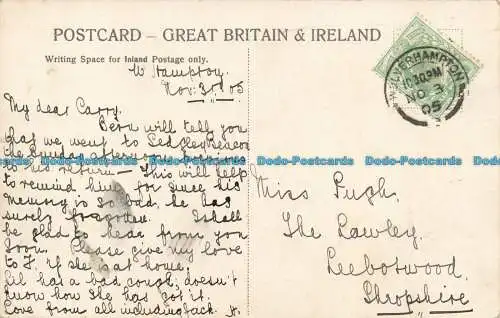 POSTCARD – GREAT BRITAIN & IRELAND
Writing Space for Inland Postage only.
W. Hampton,
Nov: 3rd 05
My dear Carry,
Bern will tell you
that we went to Sedgley Beacon
the Sunday afternoon previous
to his return – This will help
to remind him, for since his
memory is so bad, he has
surely forgotten. I shall
be glad to hear from you
soon. Please give my love
to F. if she is at home,
Lil has a bad cough, doesn't
know how she has got it.
Love from all including Jack.
WOLVERHAMPTON
10.30PM
NO 3
05
Miss Pugh,
The Lawley,
Leebotwood,
Shropshire
Dodo-Postcards Dodo-Postcards Dodo-Postcards Dodo-Postcards Dodo-Postcards